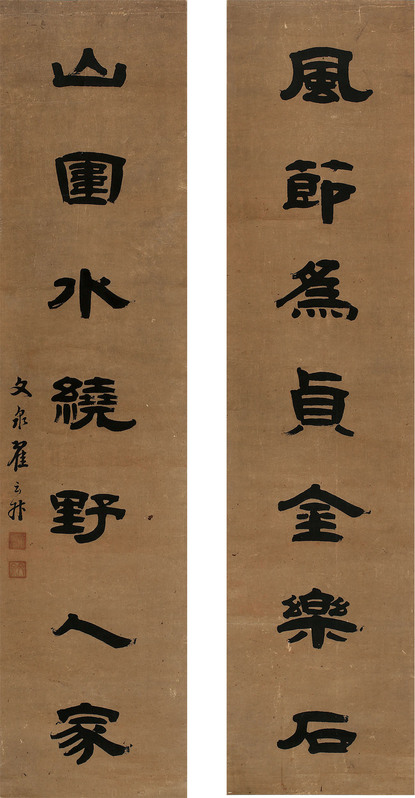 風節為貞金樂石
山圍水繞野人家
文泉翟云升